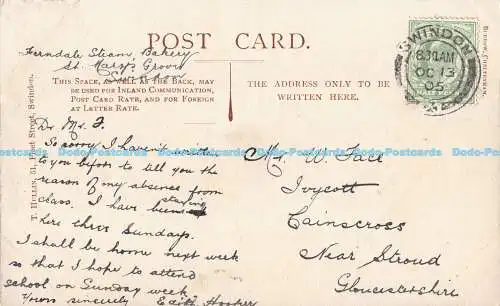 POST CARD.
Ferndale Steam Bakery
St. Mary's Grove
Swindon
THIS SPACE, AS WELL AS THE BACK, MAY
BE USED FOR INLAND COMMUNICATION,
POST CARD RATE, AND FOR FOREIGN
AT LETTER RATE.
THE ADDRESS ONLY TO BE
WRITTEN HERE.
SWINDON
8.30AM
OC 13
05
Dr Mr. F.
So sorry I haven't written
to you before to tell you the
reason of my absence from
class. I have been staying
here three Sundays.
I shall be home next week
so that I hope to attend
school on Sunday week
Yours sincerely Edith Hooper
Mr. W. Face
Ivycott
Cainscross
Near Stroud
Gloucestershire
Street, Swindon.
Dodo-Postcards Dodo-Postcards Dodo-Postcards Dodo-Postcards Dodo-Postcards